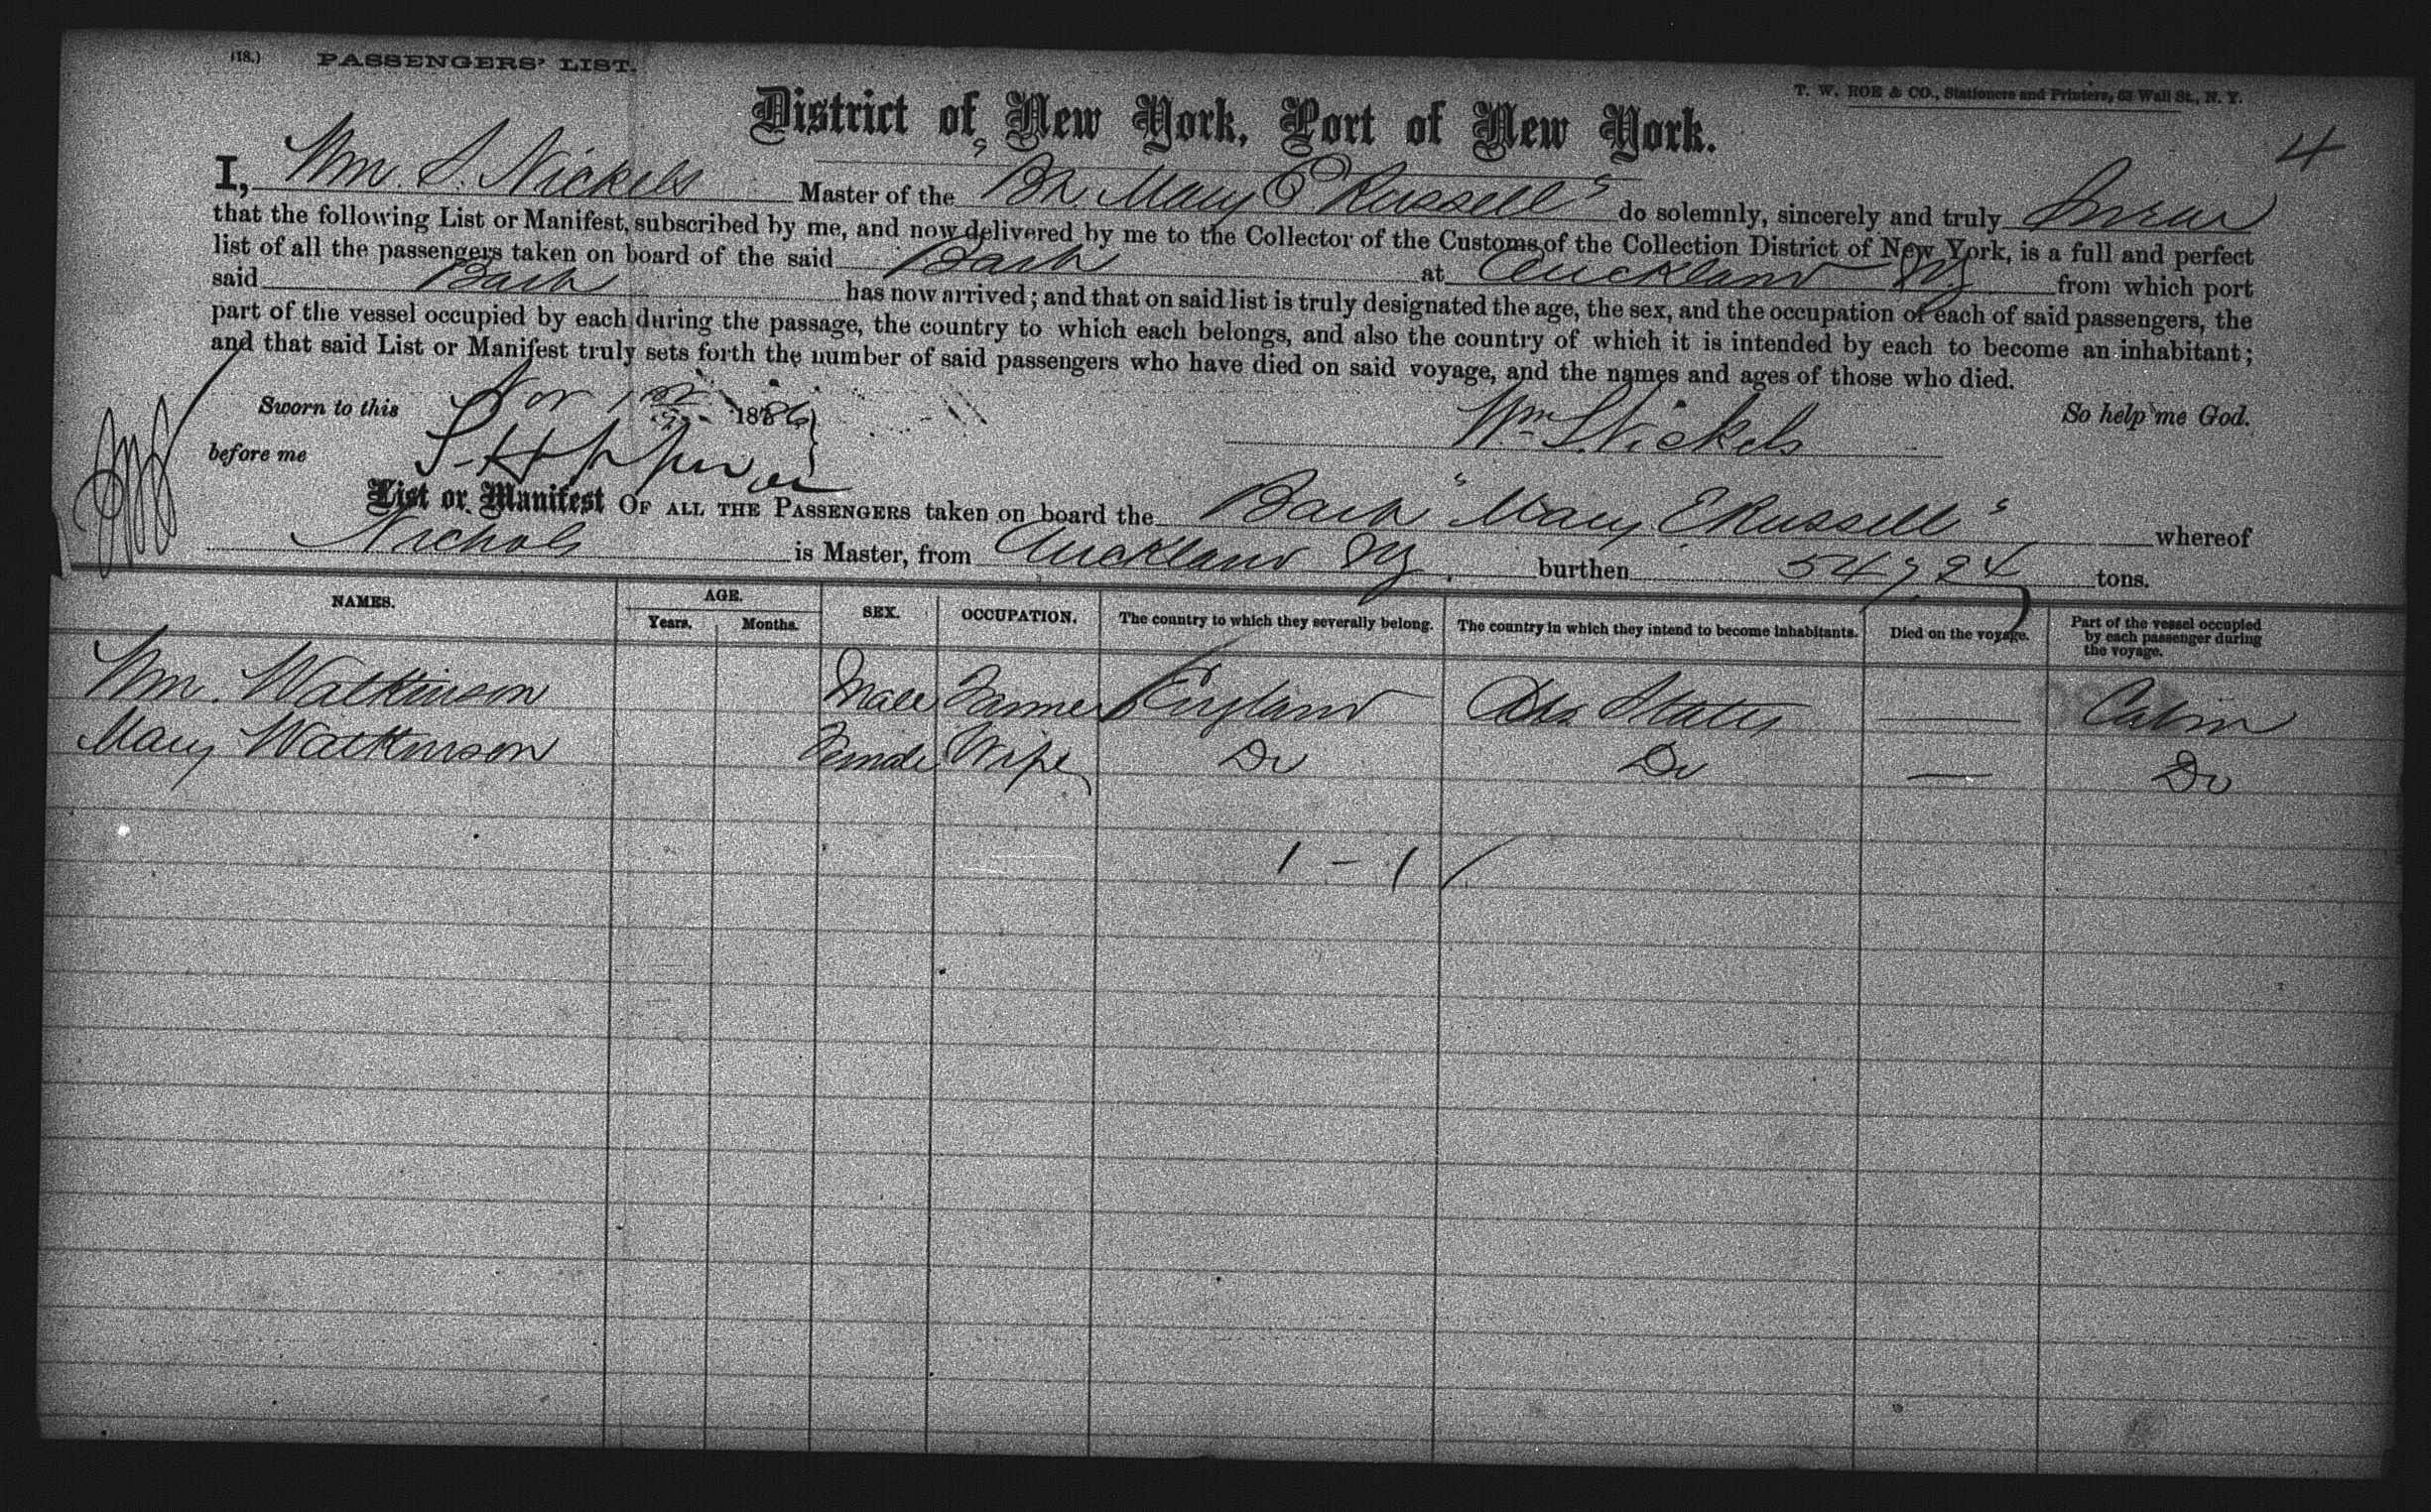 (18.) PASSENGERS' LIST.
T. W. ROE & CO., Stationers and Printers, 63 Wall St., N. Y.
District of New York, Port of New York.
4
I, Wm. S. Nickels Master of the "Bk Mary E Russell" do solemnly, sincerely and truly Swear
that the following List or Manifest, subscribed by me, and now delivered by me to the Collector of the Customs of the Collection District of New York, is a full and perfect
list of all the passengers taken on board of the said Bark at Auckland NZ from which port
said Bark has now arrived; and that on said list is truly designated the age, the sex, and the occupation of each of said passengers, the
part of the vessel occupied by each during the passage, the country to which each belongs, and also the country of which it is intended by each to become an inhabitant;
and that said List or Manifest truly sets forth the number of said passengers who have died on said voyage, and the names and ages of those who died.
Sworn to this Nov 1st 1886
So help me God.
before me
Wm S. Nickels
List or Manifest OF ALL THE PASSENGERS taken on board the Bark "Mary E Russell" whereof
Nichols is Master, from Auckland NZ. burthen tons.
NAMES. AGE. Years. Months. SEX. OCCUPATION. The country to which they severally belong. The country in which they intend to become inhabitants. Died on the voyage. Part of the vessel occupied by each passenger during the voyage.
Wm. Watkinson Male Farmer England States — Cabin
Mary Watkinson Female Wife Do Do — Do
1 - 1 /